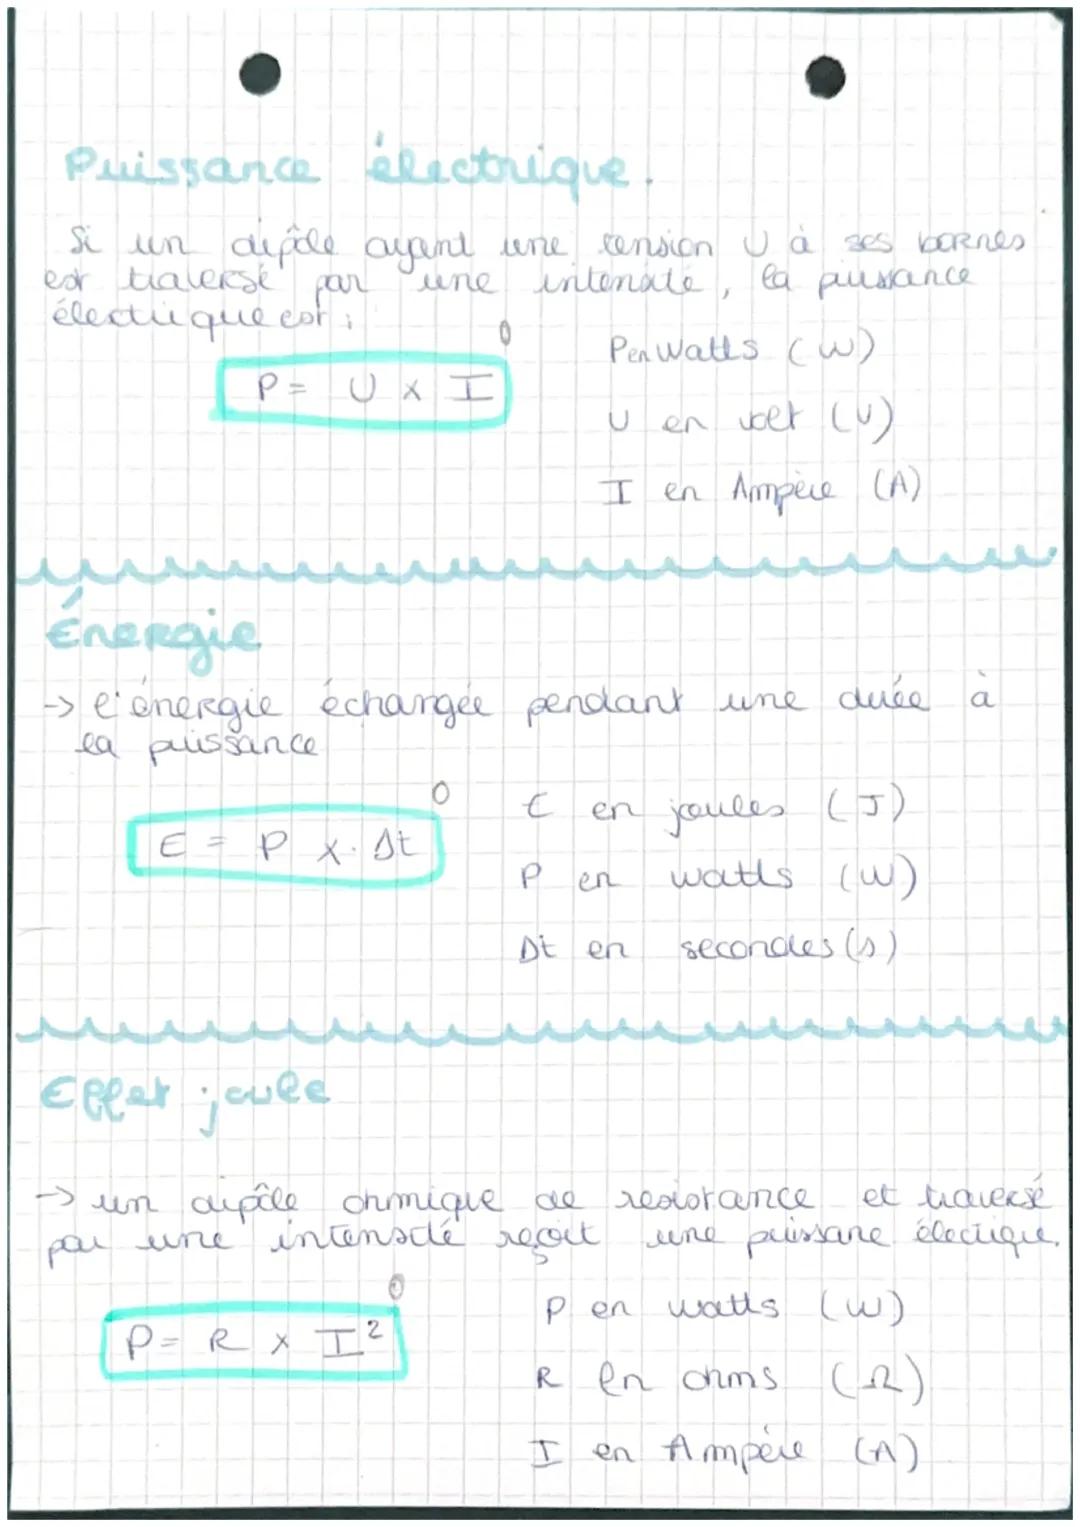 Puissance électrique.
Si un dipôle ayant une tension U à ses bornes
est traversé par une intensité, la puissance
électrique est :
P = U x I
P en Watts (W)
U en volt (V)
I en Ampère (A)
Énergie
-> l'énergie échangée pendant une durée à
la puissance
E = P x. Δt
E en joules (J)
P en watts (W)
Δt en secondes (s)
Effet joule
-> un dipôle ohmique de resistance et traversé
par une intensité reçoit une puissane électique.
P = R x I²
P en watts (W)
R en ohms (Ω)
I en Ampère (A)